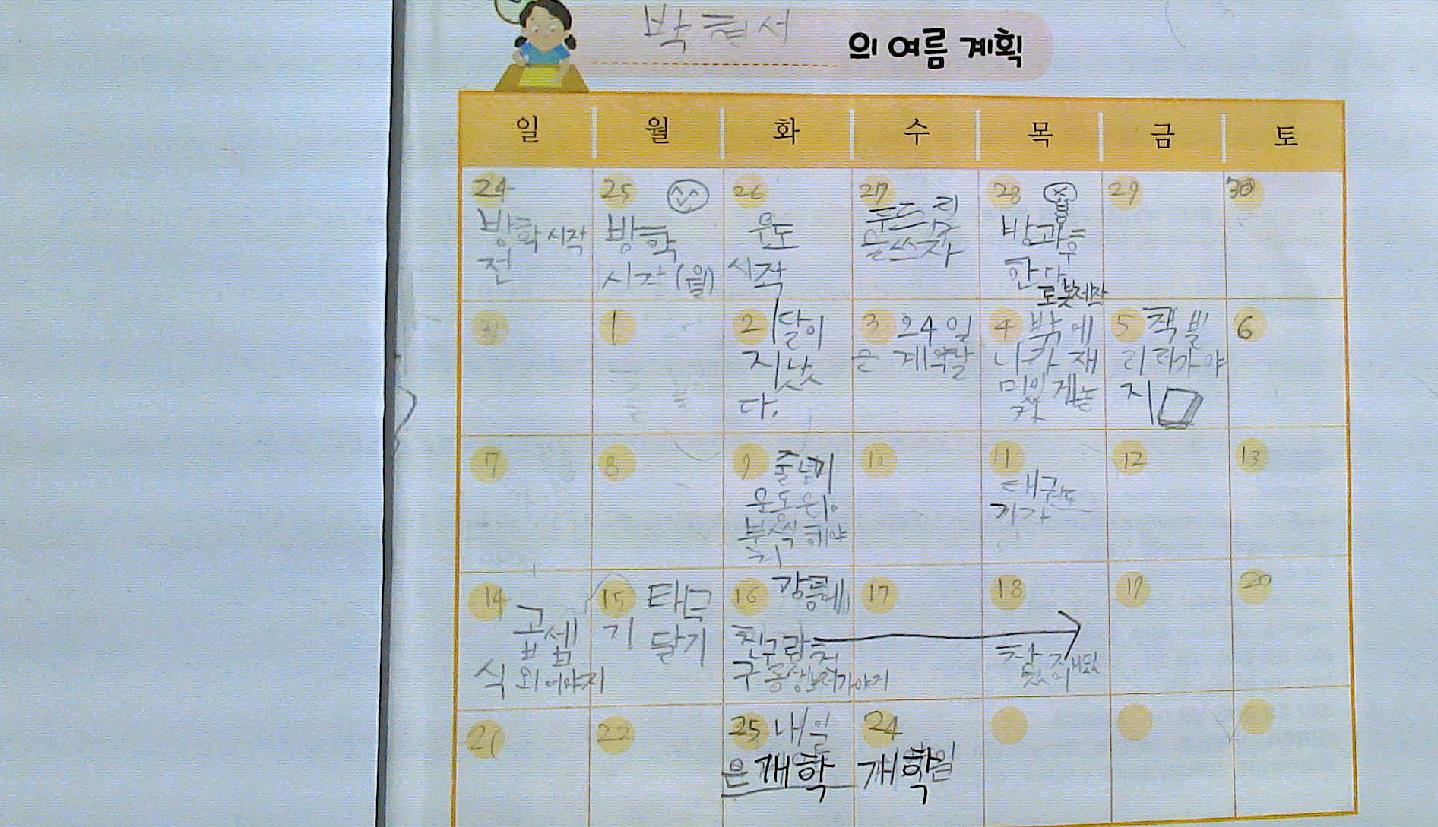 박 서
의 여름 계획
일 월 화 수 목 금 토
24
방학시작
전
25
방학
시작(월)
26
운도
시작
27
두드림
글쓰자
28
방과후
한다
로봇제작
29
30
31
1
2 달이
지났
다.
3 24일
은 개학날
4 밖에
나가 재
밌게놀
자
5 책빌
리러가야
지
6
7
8
9 줄넘기
운동
해야
지
10
11
태권도
가기
12
13
14
곱셈
식 외어야지
15 태극
기 달기
16 강릉에
친구랑 친
구 동생놀러가야지
17
18
잘 지내
19
20
21
22
25 내일
은 개학
24
개학일